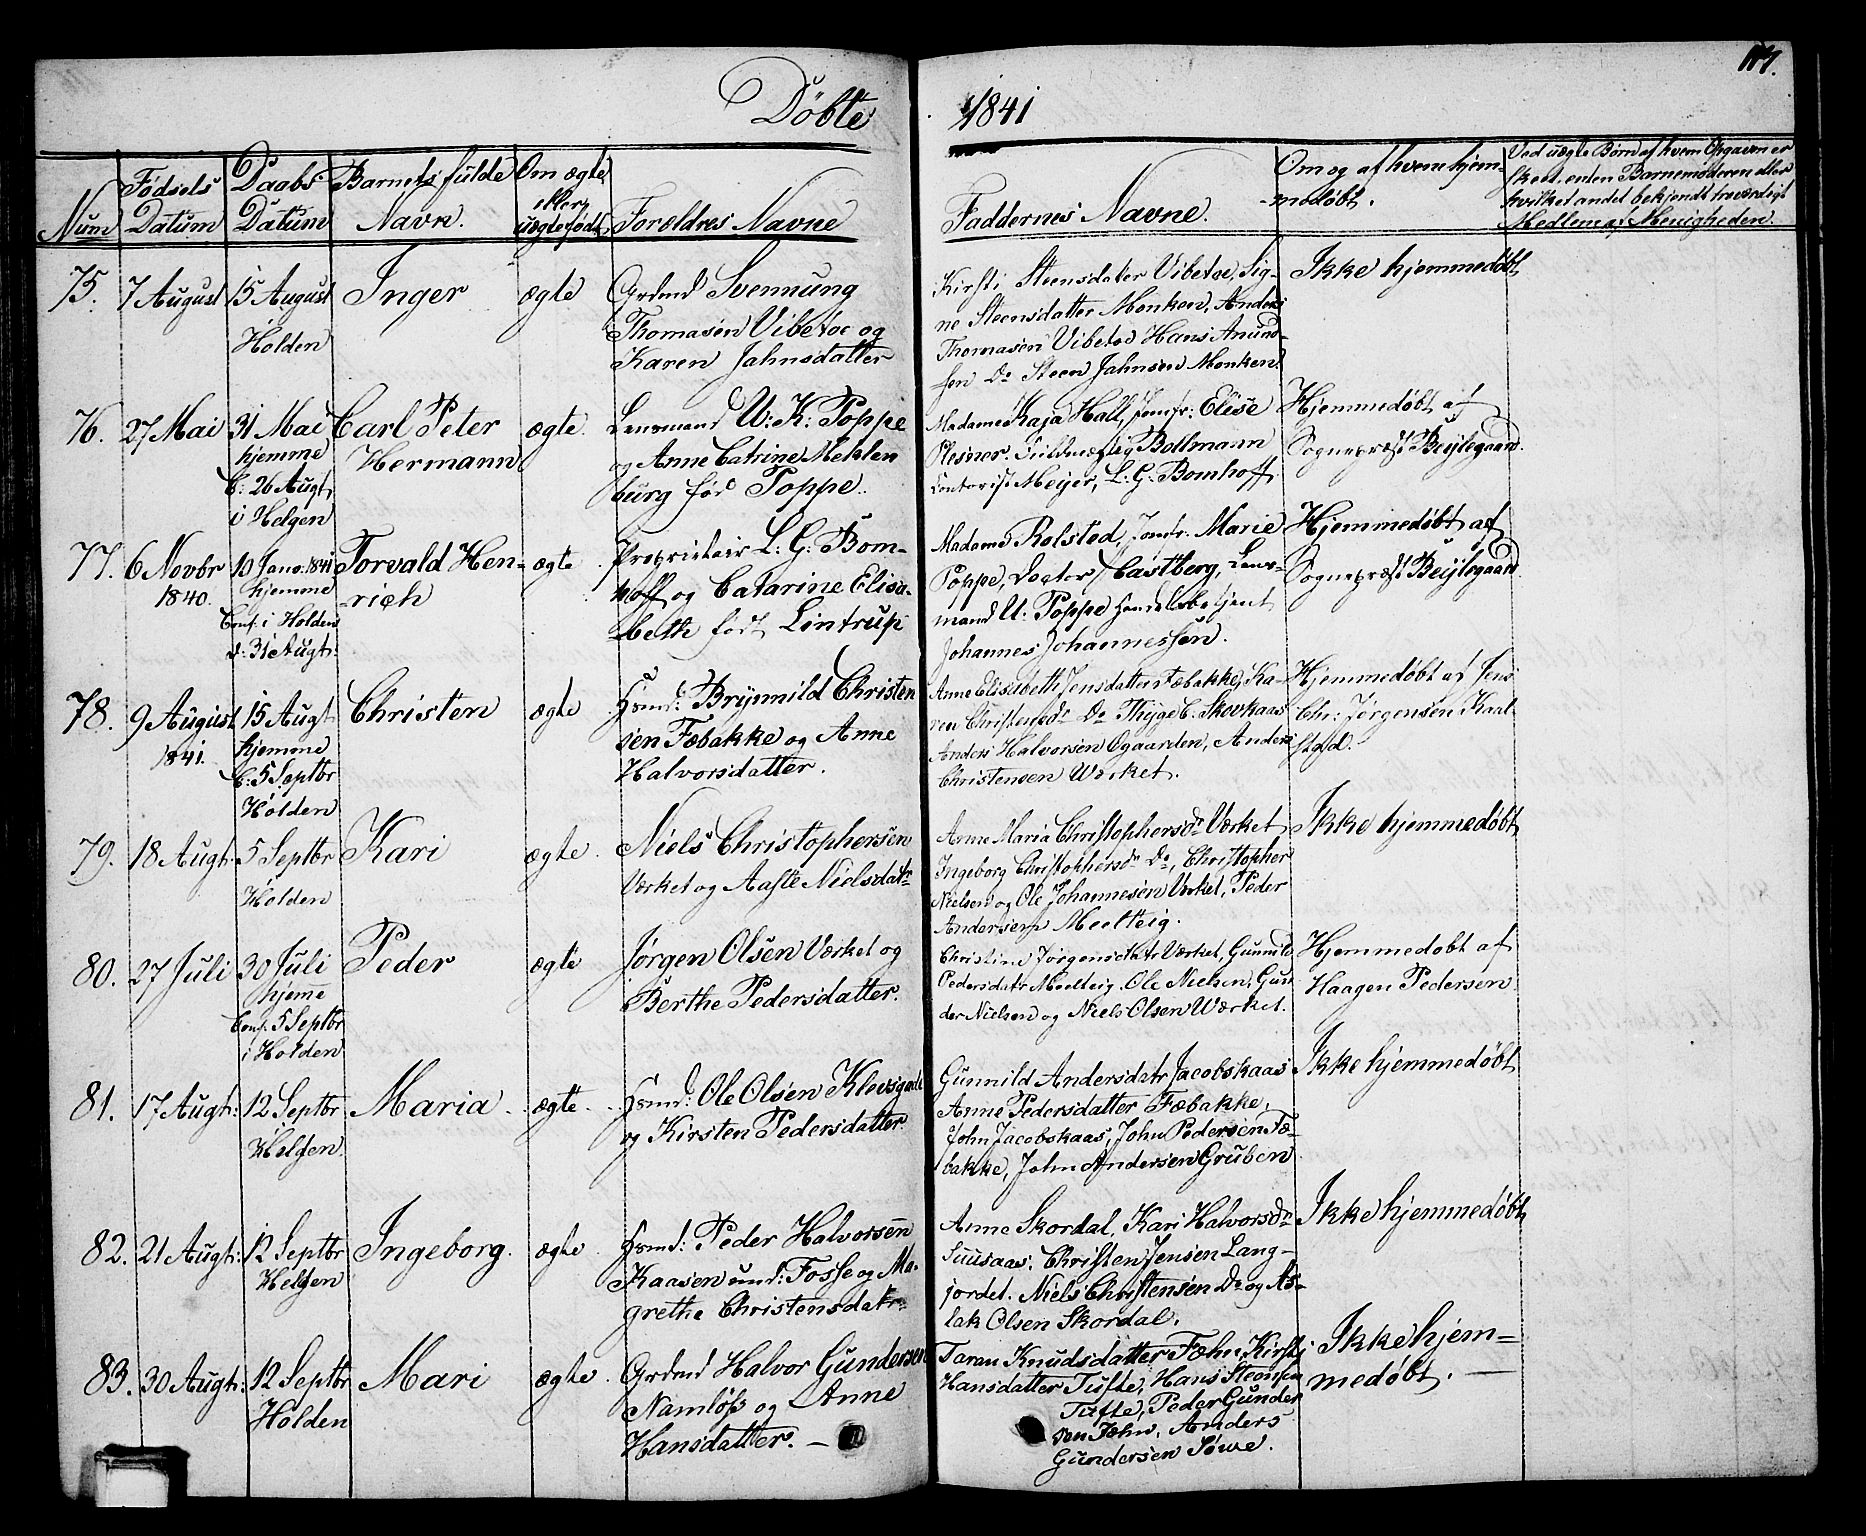 Döbte
1841
Num
Fødsels Datum
Daabs Datum
Barnets fulde Navn.
Om ægte eller uægte født.
Forældres Navne
Faddernes Navne.
Om og af hvem hjem-
medøbt.
Ved uægte Børn af hvem Opgaven er
skeet, enten Barnemoderen eller
hvilket andet bekjendt troværdigt
Medlem af Menigheden.
75.
7 August
15 August
Holden
Inger
ægte
Grdmd Svennung
Thomasen Vibetoe og
Karen Jahnsdatter
Kirsti Steensdatter Vibetoe, Sig-
ne Steensdatter Monken, Anders
Thomasen Vibetoe Hans Anund-
sen Do Steen Jahnsen Monken.
Ikke hjemmedøbt
76.
27 Mai
31 Mai
hjemme
C: 26 Augt
i Helgen
Carl Peter
Hermann
ægte.
Lensmand U: K: Poppe
og Anne Catrine Meklen
burg fød Poppe.
Madame Kaja Hall, Jomfr: Elise
Plesner. Bollmann
Contorist Meijer, L. G. Bomhoff
Hjemmedøbt af
Sognepræst Beijlegaard.
77.
6 Novbr
1840.
10 Janv: 1841
hjemme
Conf: i Holden
d: 31 Augt:
Torvald Hen-
-rich
ægte
Proprietair L: G: Bom-
hoff og Catarine Elisa-
beth født Lintrup
Madame Rolsted, Jomfr: Marie
Poppe, Doctor Castberg, Lens-
mand U: Poppe Handelsbetjent
Johannes Johannessen.
Hjemmedøbt af
Sognepræst Beijlegaard.
78.
9 August
1841.
15 Augt
hjemme
C: 5 Septbr
Holden
Christen
ægte
Hsmd: Brynnild Christen
sen Fæbakke og Anne
Halvorsdatter.
Anne Elisabeth Jensdatter Fæbakke, Ka-
ren Christensdr Do Thyge C. Skovkaas
Anders Halvorsen Ogaarden, Anders
Christensen Værket.
Hjemmedøbt af Jens
Chr: Jørgensen Kaal-
stad.
79.
18 Augt.
5 Septbr
Holden
Kari
ægte.
Niels Christophersen
Værket og Aaste Nielsdatr
Anne Maria Christophersdr Værket
Ingeborg Christophersdr Do, Christopher
Nielsen og Ole Johannesen Værket, Peder
Andersen Meelteig.
Ikke hjemmedøbt
80.
27 Juli
30 Juli
hjeme
Conf: 5 Septbr
i Holden
Peder
ægte
Jørgen Olsen Værket og
Berthe Pedersdatter.
Christine Jørgensdatr Værket, Gunnild
Pedersdatr Meelteig. Ole Nielsen, Gun
der Nielsen og Niels Olsen Værket.
Hjemmedøbt af
Haagen Pedersen
81.
17 Augt:
12 Septbr
Helgen
Maria
ægte
Hsmd: Ole Olsen
og Kirsten Pedersdatter
Gunnild Andersdatr Jacobskaas
Anne Pedersdatter Fæbakke,
John Jacobskaas, John Pedersen Fæ-
bakke, John Andersen Gruben
Ikke hjemmedøbt
82.
21 Augt:
12 Septbr
Helgen
Ingeborg.
ægte.
Hsmd: Peder Halvorsen
Kaasen und: Fosse og Ma-
grethe Christensdatr
Anne Skordal, Kari Halvorsdr
Suusaas, Christen Jensen Lang-
jordet. Niels Christensen Do og As-
lak Olsen Skordal.
Ikke hjemmedøbt
83.
30 Augt:
12 Septbr
Holden
Mari
ægte.
Grdmd Halvor Gundersen
Namløs og Anne
Hansdatter. —
Taran Knudsdatter Fæhn, Kirsti
Hansdatter Tufte, Hans Steensen
Tufte, Peder Gunder
sen Fæhn, Anders
Gundersen Søwe.
Ikke hjem-
medøbt. —